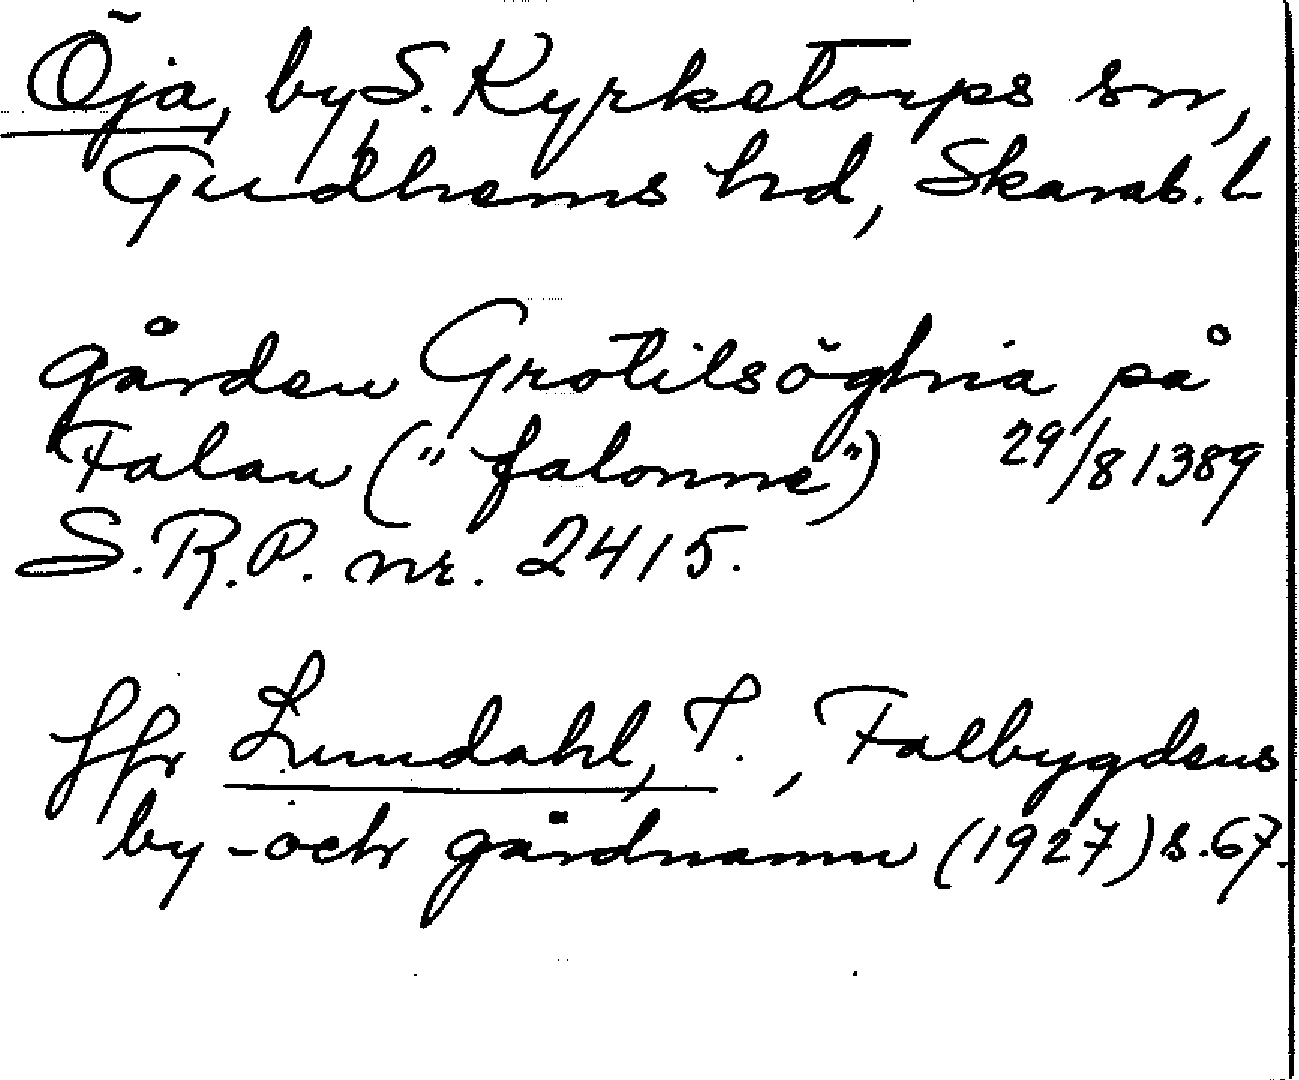 Öja, by, S. Kyrketorps sn,
Gudhems hd, Skarab. l
gården Grotilsöghia på
Falan ("falonne") 29/8 1389
S.R.P. nr. 2415.
Jfr Lundahl, I., Falbygdens
by- och gårdnamn (1927) s. 67.